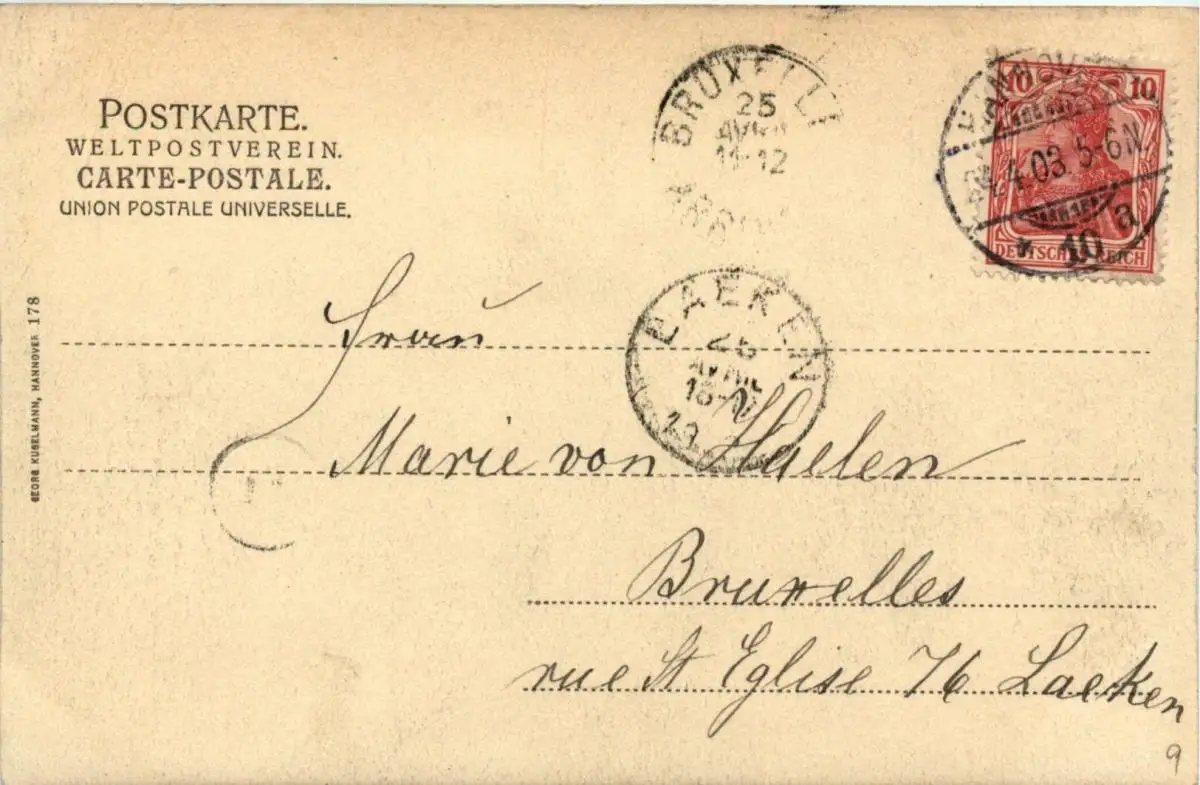 POSTKARTE.
WELTPOSTVEREIN.
CARTE-POSTALE.
UNION POSTALE UNIVERSELLE.
BRUXELL
25
11-12
10 10
DEUTSCHES REICH
4.03. 5-6N.
* 10 a
LAEKEN
25
GEORG KUGELMANN, HANNOVER 178
Frau
Marie von Haelen
Bruxelles
rue St Eglise 76 Laeken
9